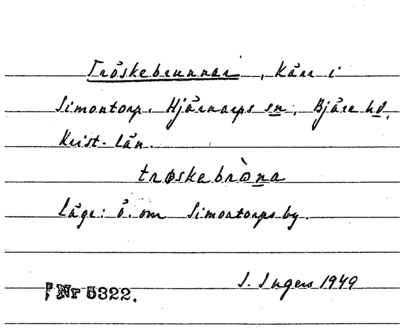 Tröskebrunnar, Kärr i
Simontorp. Hjärnarps sn, Bjäre hd,
Krist. län.
trøskebròna
Läge: ö. om Simontorps by.
I. Ingers 1949
Nr 5322.